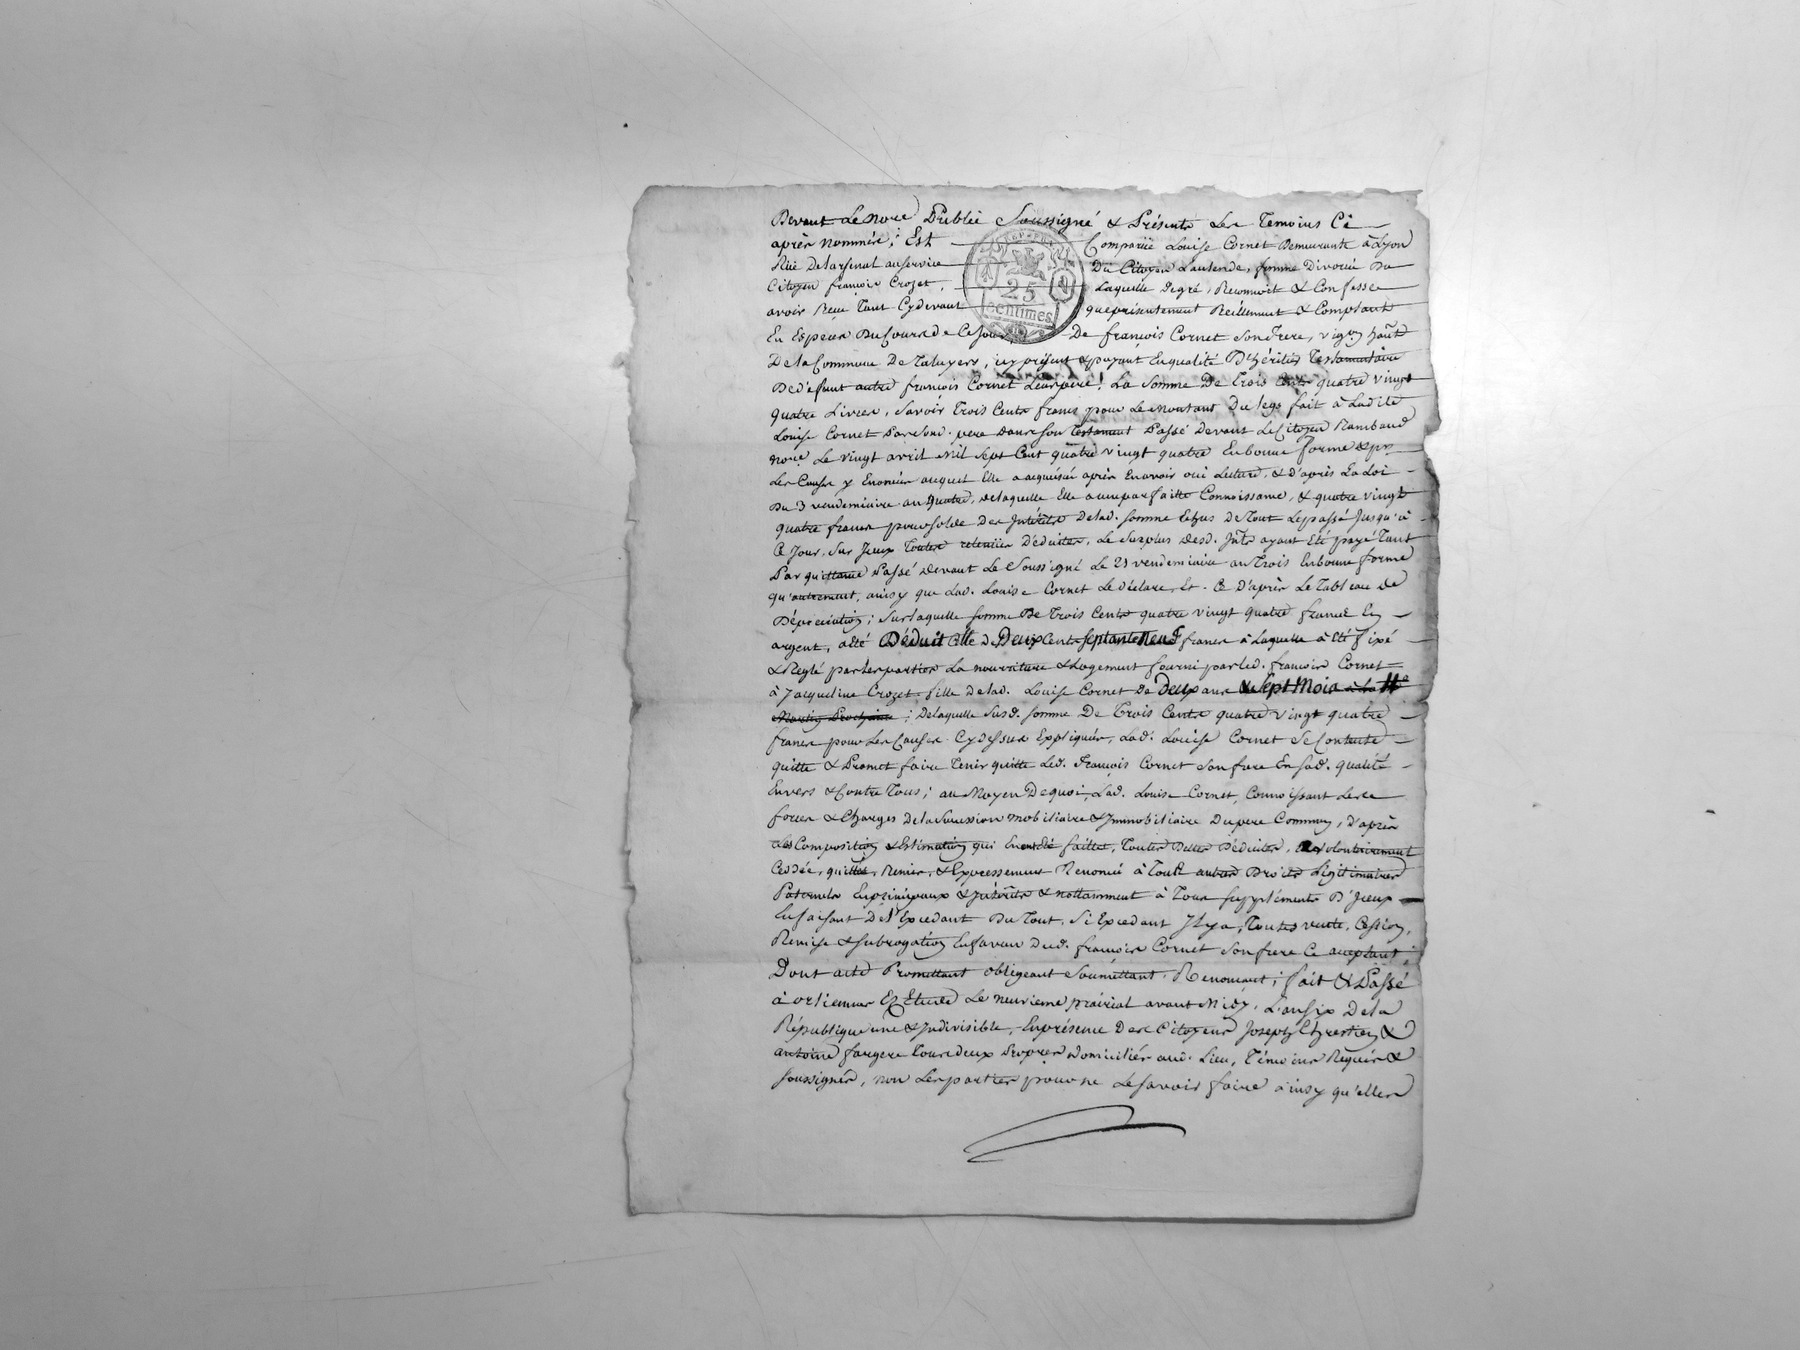 Devant Le nore Public Soussigné & Présents Les Temoins Cÿ
après nommés; Est Comparüe Louise Cornet Demeurante à Lyon
Rüe Delarsenal auservice Du Citoyen Lautende, femme Divorcée Du
Citoyen françois Crozet, Laquelle Degré, Reconnoit & Confesse
avoir Reçu Tant Cydevant queprésentement Réellement & Comptant
En Espèces Ducoursde Cejour, De françois Cornet Sonfrere, vigon habt
DelaCommune De Taluyers, icy présent & payant Enqualité D'héritier Testamentaire
Dedéfunt autre françois Cornet Leurpere; La Somme De Trois Cents quatre vingt
quatre Livres, Savoir Trois Cents francs pour Le Montant Du legs fait à Ladite
Louise Cornet Parsond. pere Dansson Testament Passé Devant LeCitoyen Rambaud
nore Le vingt avril Mil Sept Cent quatre vingt quatre Enbonne forme & pr
Les Causes y Enoncées auquel Elle a acquiescé après Enavoir oui Lecture, & D'après La Loi
Du 3 vendemiaire an quatre, Delaquelle Elle a uneparfaitte Connoissance, & quatre vingt
quatre francs poursolde Des Intérêts Delad. somme Echus DeTout Lepassé Jusqu'à
Ce Jour, Sur Iceux Toutes retenües Déduites, Le Surplus Desd. Ints ayant Eté payé Tant
Par quittance Passé Devant Le Soussigné Le 21 vendemiaire an Trois Enbonne forme
qu'autrement, ainsy que Lad. Louise Cornet Le déclare, Et Ce D'après Le Tableau De
Dépréciation; Surlaquelle somme De Trois Cents quatre vingt quatre francs En
argent, aété Déduit Celle De Deux Cents Septante Neuf francs à Laquelle à été fixé
& Reglé parLesparties La nourriture & Logement fourni parled. françois Cornet
à Jacqueline Crozet fille Delad. Louise Cornet De Deux ans & Sept Mois à La St
Martin Prochaine; Delaquelle Susd. somme De Trois Cents quatre vingt quatre
francs pour Les Causes Cydessus Expliquées, Lad. Louise Cornet Se Contente
quitte & Promet faire Tenir quitte Led. François Cornet Son frere En Sad. qualité
Envers & Contre Tous; au Moyen Dequoi, Lad. Louise Cornet, Connoissant Les
forces & Charges Dela Succession Mobiliaire & Immobiliaire Dupere Commun, D'après
Les Composition & Estimation qui Enontété faittes, Toutes Dettes Déduites, a volontairement
Cédée, quitté, Remis, & Expressement Renoncé à Tout autres Droits Légitimaires
Paternels Enprincipaux & Intérêts & nottamment à Tous Suppléments D'Iceux
Enfaisant De L'Excedant Du Tout, Si Excedant Ilya, Toutes vente, Cession,
Remise & Subrogation Enfaveur Dud. françois Cornet Son frere Ce acceptant;
Dont acte Promettant obligeant Soumettant, Renonçant; fait & Passé
à orlienas Ez Etude Le neuvieme prairial avant Midy, L'ansix Dela
République une & Indivisible, Enprésence Des Citoyens Joseph &
antoine fargere Tousdeux Domiciliés aud. Lieu, Témoins Requis &
Soussignés, non Lesparties pour ne Lesavoir faire ainsy qu'elles
25
centimes